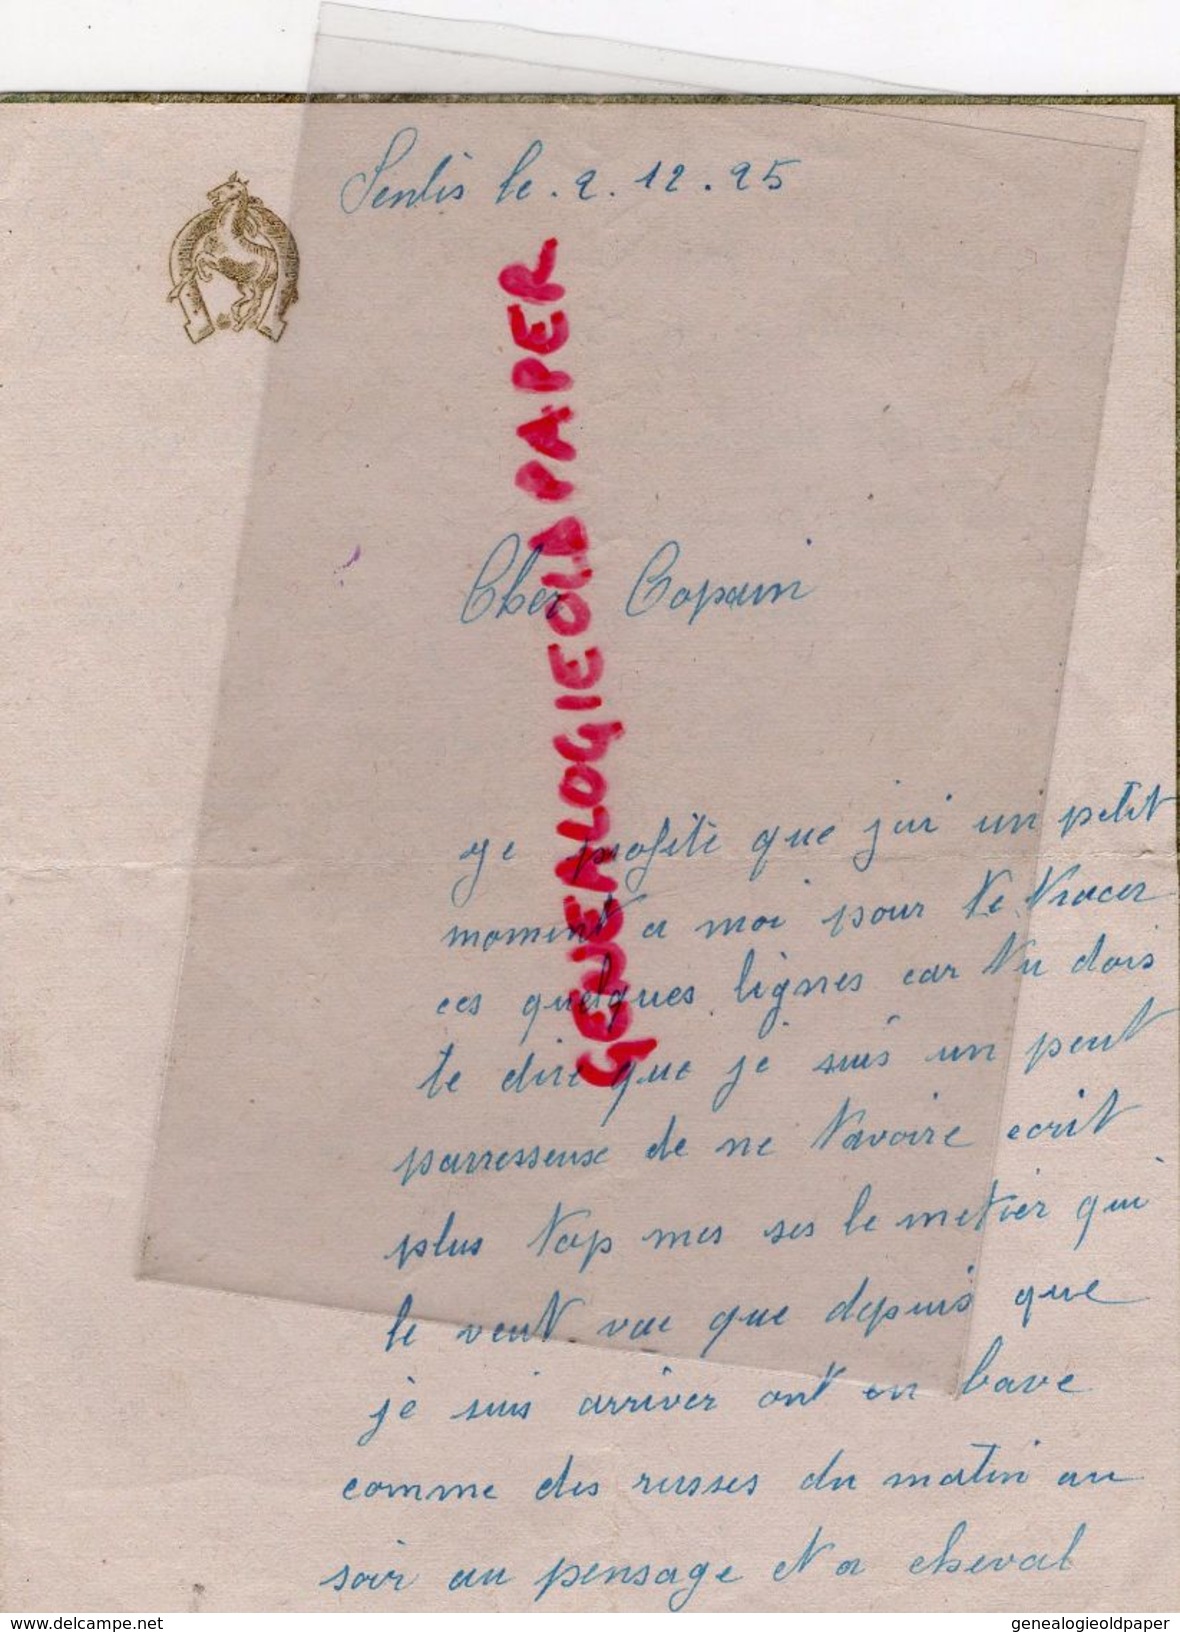 Senlis le . 2 . 12 . 25
GENEALOGIEOLDPAPER
Cher Copain
Je profite que jai un petit
moment a moi pour te tracer
ces quelques lignes car tu dois
te dire que je suis un peut
parresseux de ne tavoire ecrit
plus top mes ses le metier qui
le veut vue que depuis que
je suis arriver ont en bave
comme des russes du matin au
soir au pensage et a cheval
www.delcampe.net
genealogieoldpaper